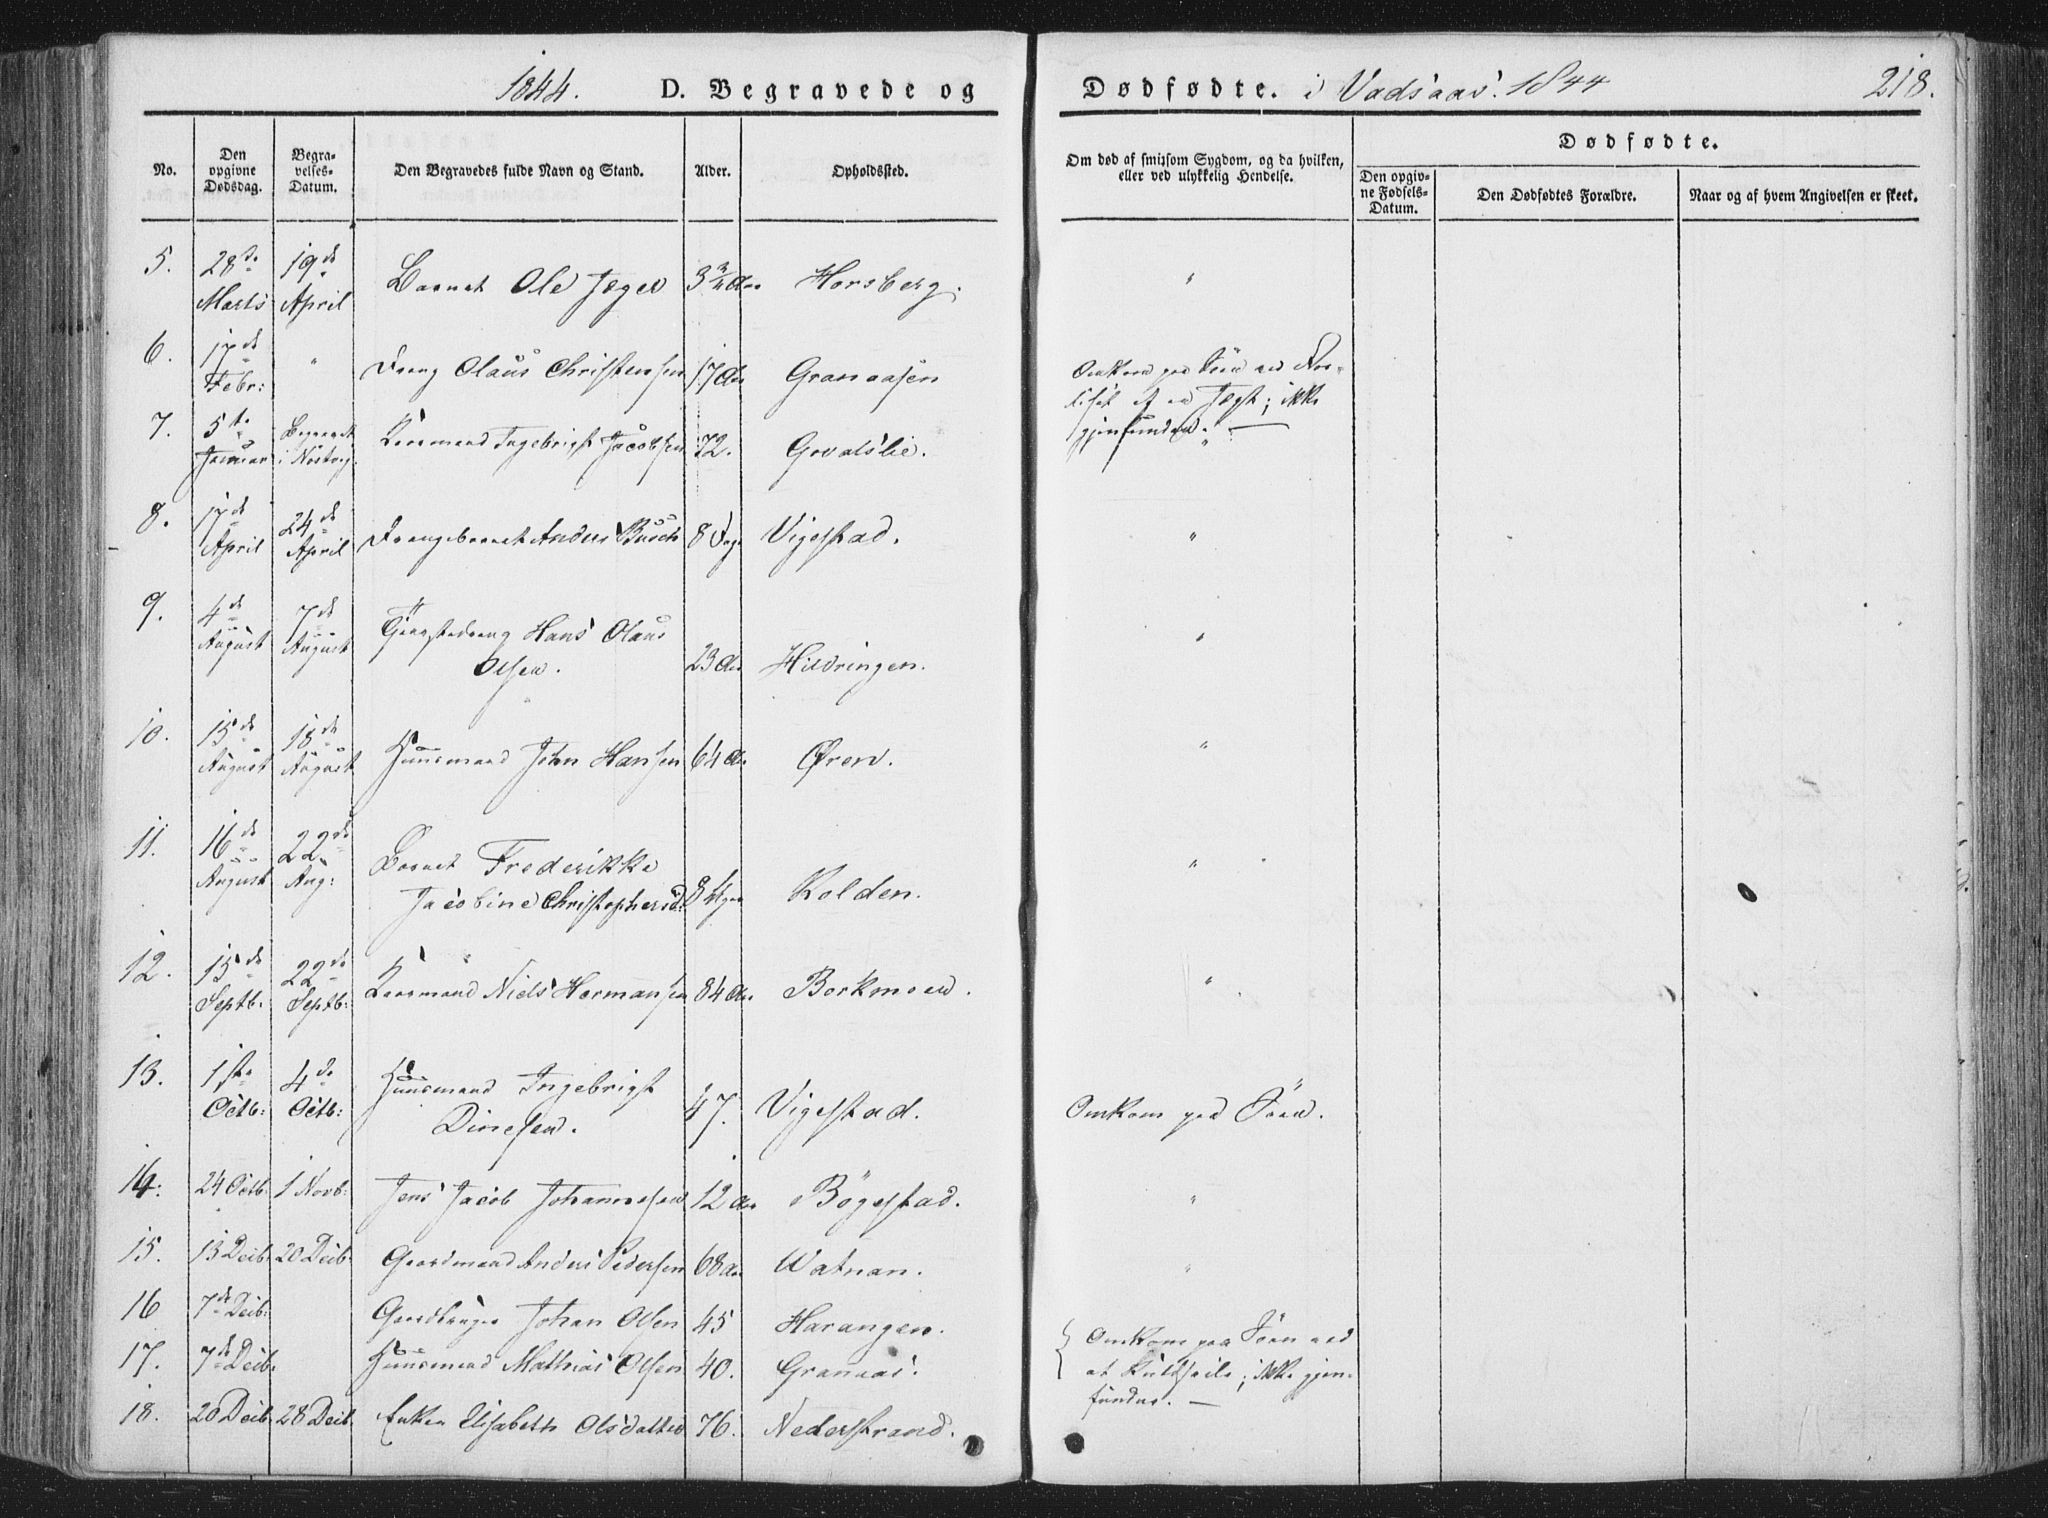 1844. D. Begravede og Dødfødte. i Vadsaas. 1844 218.
No.
Den opgivne Dødsdag.
Begravelses-Datum.
Den Begravedes fulde Navn og Stand.
Alder.
Opholdssted.
Om død af smitsom Sygdom, og da hvilken, eller ved ulykkelig Hendelse.
Dødfødte.
Den opgivne Fødsels-Datum.
Den Dødfødtes Forældre.
Naar og af hvem Angivelsen er skeet.
5. 28de Marts 19de April Barnet Ole Jæger Horsberg. "
6. 17de Febr: " Dreng Olaus Christensen 17 Aar Granaasen Omkom paa Søen ved For-
liset af en Jægt; ikke
gjenfunden. —
7. 5te Januar Begravet i Kaarmand Ingebrigt Jacobsen 72. "
8. 17de April 24de April Drengebarnet Anders Busch 8 Dage Vigestad. "
9. 4de August 7de August Hans Olaus
Olsen. 23 Aar Hildringen. "
10. 15de August 18de August Huusmand John Hansen 64 Aar Øren. "
11. 16de August 22de Aug: Barnet Frederikke
Jacobine Christophersd: Kolden. "
12. 15de Septb: 22de Septb: Kaarmand Niels Hermansen 84 Aar Borkmoen. "
13. 1ste Octb: 4de Octb: Huusmand Ingebrigt
Dinesen. 47. Vigestad. Omkom paa Søen.
14. 24 Octb: 1 Novb: Jens Jacob Johannesen 12 Aar Bøgestad. "
15. 13 Decb: 20 Decb: Gaardmand Anders Pedersen 68 Aar Watnan. "
16 7de Decb: Johan Olsen 45 Harangen. Omkom paa Søen ved
17. 7de Decb: Huusmand Mathias Olsen 40. Granaas. at Kuldseile; ikke gjen-
fundne. —
18. 20 Decb: 28 Decb: Enken Elisabeth Olsdatter 76. Nederstrand.